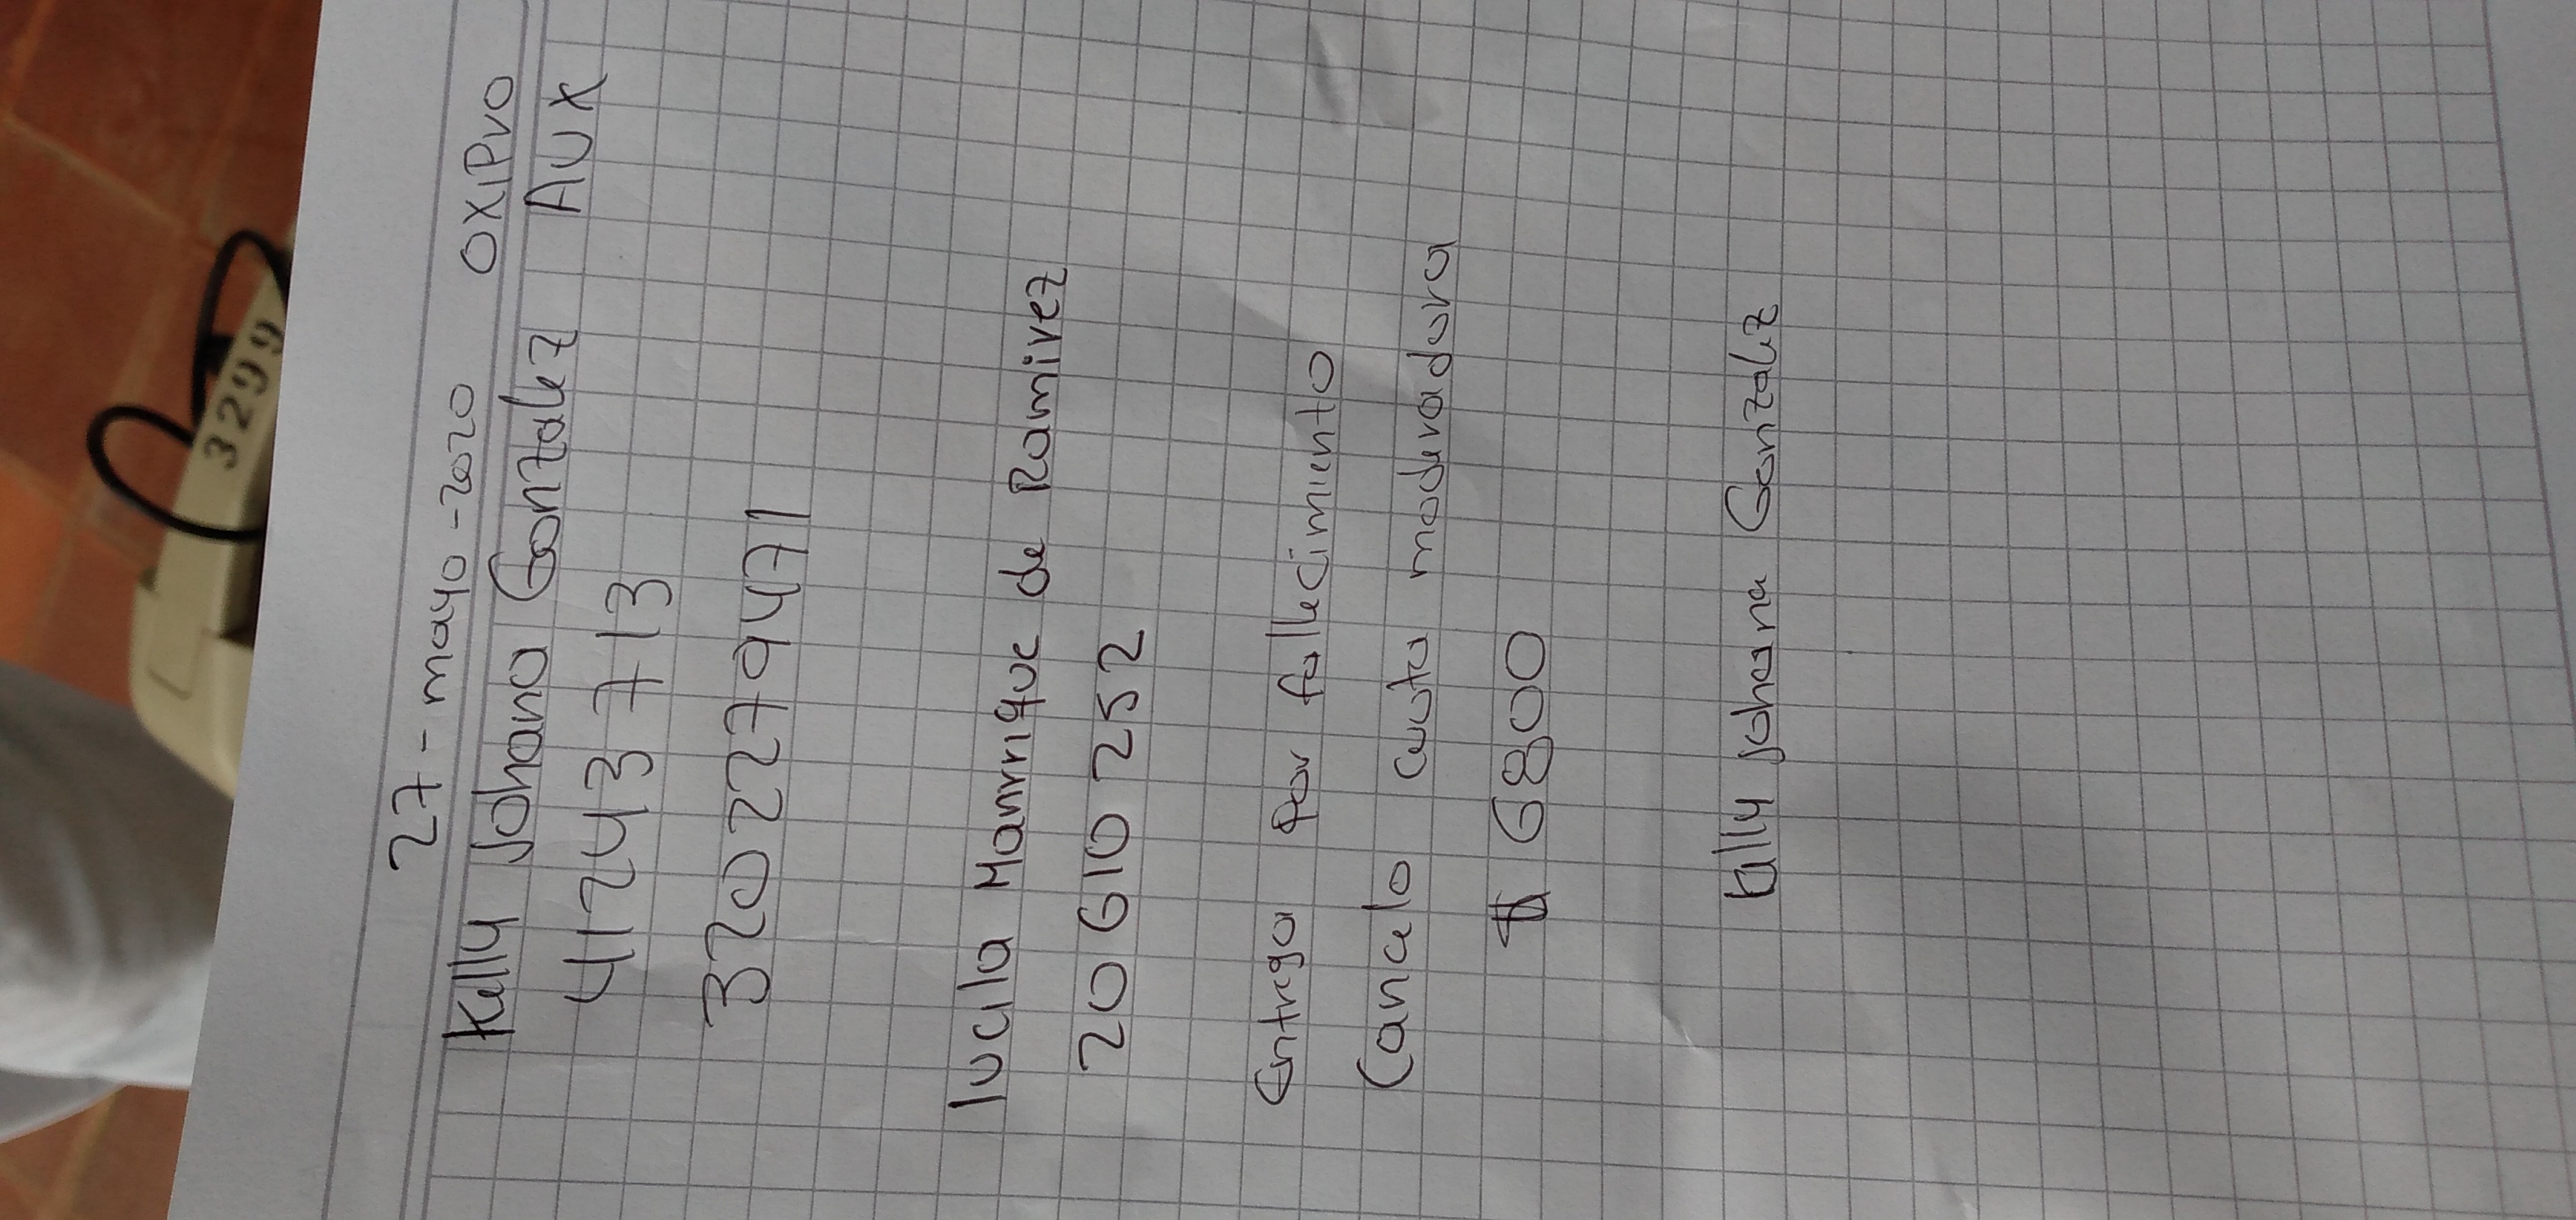 27 - mayo - 2020 OXIPRO
Kelly Johana Gonzalez AUX
41243 713
320 2279471
lucila Manrrique de Ramirez
20 610 252
Entrega por fallecimiento
Cancelo cuota moderadora
$ 6800
Kelly Johana Gonzalez
3299